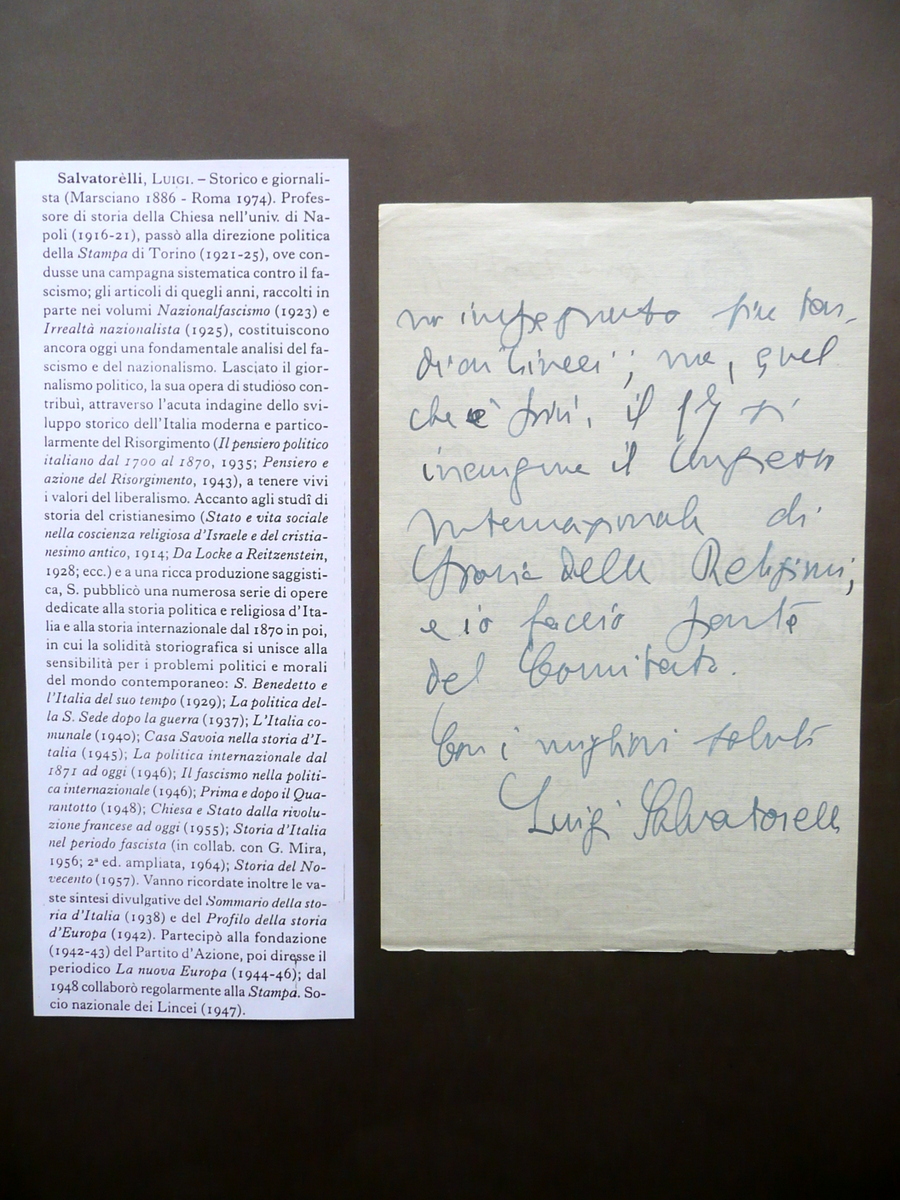 Salvatorèlli, LUIGI. – Storico e giornali-
sta (Marsciano 1886 - Roma 1974). Profes-
sore di storia della Chiesa nell'univ. di Na-
poli (1916-21), passò alla direzione politica
della Stampa di Torino (1921-25), ove con-
dusse una campagna sistematica contro il fa-
scismo; gli articoli di quegli anni, raccolti in
parte nei volumi Nazionalfascismo (1923) e
Irrealtà nazionalista (1925), costituiscono
ancora oggi una fondamentale analisi del fa-
scismo e del nazionalismo. Lasciato il gior-
nalismo politico, la sua opera di studioso con-
tribuì, attraverso l'acuta indagine dello svi-
luppo storico dell'Italia moderna e partico-
larmente del Risorgimento (Il pensiero politico
italiano dal 1700 al 1870, 1935; Pensiero e
azione del Risorgimento, 1943), a tenere vivi
i valori del liberalismo. Accanto agli studî di
storia del cristianesimo (Stato e vita sociale
nella coscienza religiosa d'Israele e del cristia-
nesimo antico, 1914; Da Locke a Reitzenstein,
1928; ecc.) e a una ricca produzione saggisti-
ca, S. pubblicò una numerosa serie di opere
dedicate alla storia politica e religiosa d'Ita-
lia e alla storia internazionale dal 1870 in poi,
in cui la solidità storiografica si unisce alla
sensibilità per i problemi politici e morali
del mondo contemporaneo: S. Benedetto e
l'Italia del suo tempo (1929); La politica del-
la S. Sede dopo la guerra (1937); L'Italia co-
munale (1940); Casa Savoia nella storia d'I-
talia (1945); La politica internazionale dal
1871 ad oggi (1946); Il fascismo nella politi-
ca internazionale (1946); Prima e dopo il Qua-
rantotto (1948); Chiesa e Stato dalla rivolu-
zione francese ad oggi (1955); Storia d'Italia
nel periodo fascista (in collab. con G. Mira,
1956; 2ª ed. ampliata, 1964); Storia del No-
vecento (1957). Vanno ricordate inoltre le va-
ste sintesi divulgative del Sommario della sto-
ria d'Italia (1938) e del Profilo della storia
d'Europa (1942). Partecipò alla fondazione
(1942-43) del Partito d'Azione, poi diresse il
periodico La nuova Europa (1944-46); dal
1948 collaborò regolarmente alla Stampa. So-
cio nazionale dei Lincei (1947).
no impegnato fin tar-
di ai Lincei; ma, quel
che è più, il 17 si
inaugura il Congresso
Internazionale di
Storia delle Religioni;
e io faccio parte
del Comitato.
Con i migliori saluti
Luigi Salvatorelli